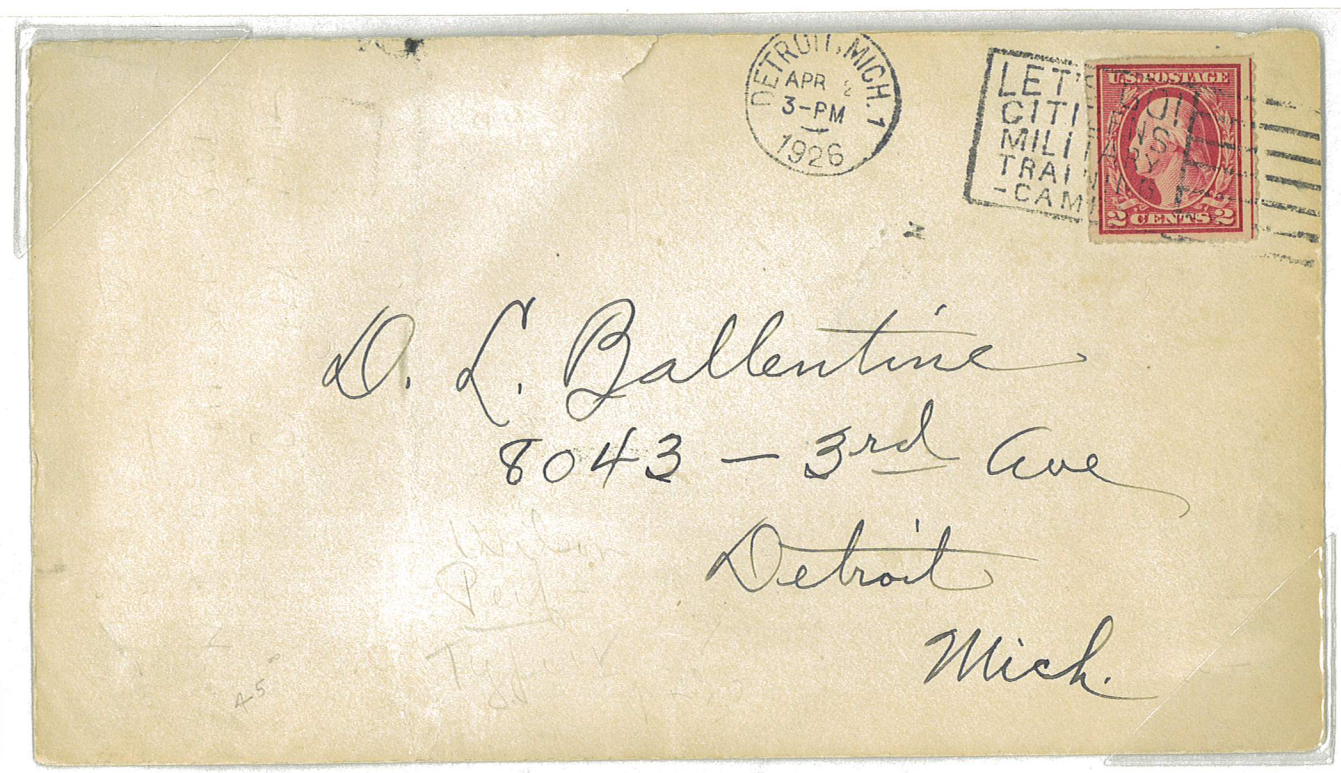 DETROIT, MICH. 1
APR 2
3-PM
1926
LET'S
CITIZENS
MILITARY
TRAINING
-CAMP
U.S. POSTAGE
2 CENTS 2
D. L. Ballentine
8043 – 3rd Ave
Detroit
Mich.
Perf
Type
A-5